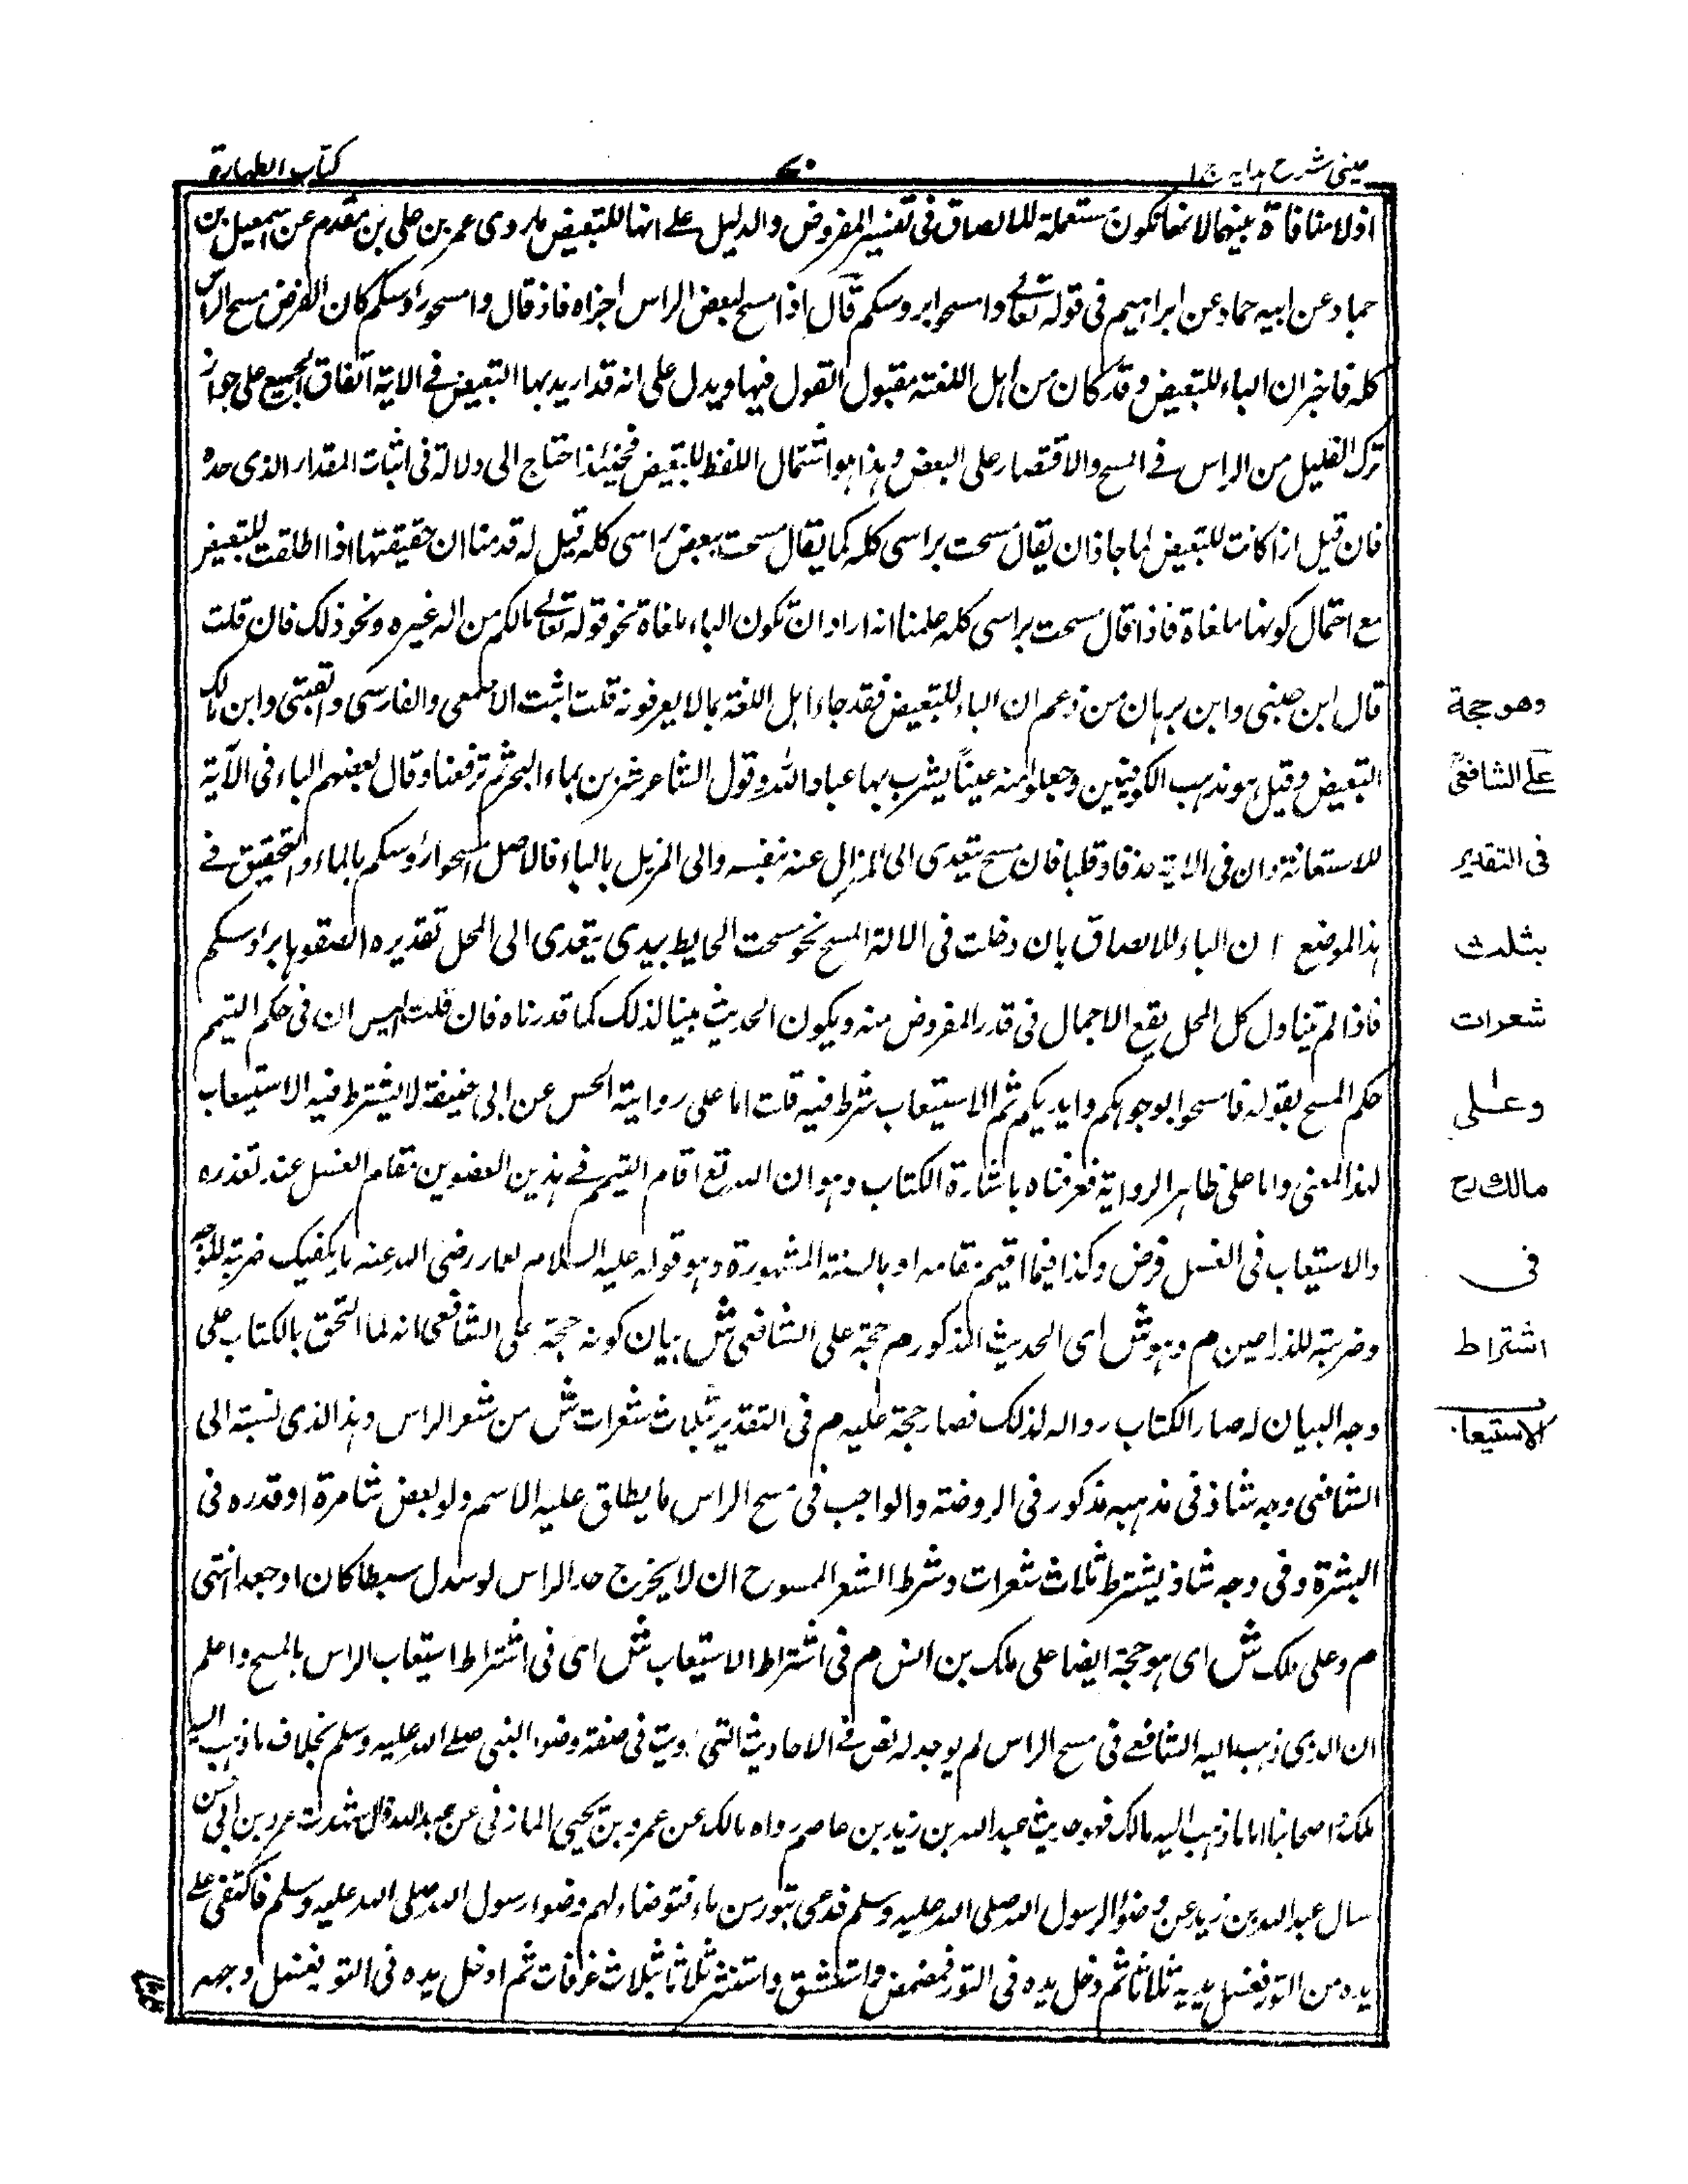 عینی شرح ہدایہ ج ۱
۷۰
کتاب الطہارة
اذ لا منافاة بينهما لانها تكون مستعملة للالصاق فى تفسير المفروض والدليل على انها للتبعيض ما روى عمر بن على بن مقدم عن اسمعيل بن
حماد عن ابيه حماد عن ابراهيم فى قوله تعالى وامسحوا بروسكم قال اذا مسح ببعض الراس اجزاه فاذ قال وامسحوا رؤسكم كان الفرض مسح الراس
كله فاخبر ان الباء للتبعيض وقد كان من اهل اللغته مقبول القول فيها ويدل على انه قد اريد بها التبعيض فى الاية اتفاق الجميع على جواز
ترك القليل من الراس فى المسح والاقتصار على البعض وهذا هو اشتمال اللفظ للتبعيض فحينئذ احتاج الى دلالة فى اثبات المقدار الذى حده
فان قيل اذا كانت للتبعيض لما جاذ ان يقال مسحت براسى كله كما يقال مسحت ببعض راسى كله قيل له قد منا ان حقيقتها اذا اطلقت للتبعيض
مع احتمال كونها ملغاة فاذا قال مسحت براسى كله علمنا انه اراد ان تكون الباء ملغاة نحو قوله تعالى مالكم من اله غيره ونحو ذلك فان قلت
قال ابن جنى وابن برهان من زعم ان الباء للتبعيض فقد جاء اهل اللغة بمالا يعرفونه قلت اثبت الاصمعى والفارسى والقتبى وابن مالك
التبعيض وقيل هو مذهب الكوفيين وجعلوا منه عيناً يشرب بها عباد الله وقول الشاعر شربن بماء البحر ثم ترفعنا وقال بعضهم الباء فى الآية
للاستعانة وان فى الاية حذفا وقلبا فان مسح يتعدى الى المزال عنه بنفسه والى المزيل بالباء فالاصل امسحوا رؤسكم بالماء والتحقيق فى
هذا الموضع ان الباء للالصاق بان دخلت فى الالة المسح نحو مسحت الحايط بيدى يتعدى الى المحل تقديره الصقوها برؤسكم
فاذا لم تيناول كل المحل يقع الاجمال فى قدر المفروض منه ويكون الحديث مبينا لذلك كما قدرناه فان قلت اليس ان فى حكم التيمم
حكم المسح بقوله فامسحوا بوجوهكم وايديكم ثم الاستيعاب شرط فيه قلت اما على رواية الحسن عن ابى حنيفة لا يشترط فيه الاستيعاب
لهذا المعنى واما على ظاهر الرواية فعرفناه باشارة الكتاب وهو ان الله تع اقام التيمم فى هذين العضوين مقام الغسل عند تعذره
والاستيعاب فى الغسل فرض وكذا فيما اقيم مقامه او بالسنة المشهورة وهو قوله عليه السلام لعمار رضى الله عنه ما يكفيك ضربة للوجه
وضربته للذراعين م وهو ش اى الحديث المذكور م حجة على الشافعى ش بيان كونه حجة على الشافعى انه لما التحق بالكتاب على
وجه البيان له صار الكتاب رواله لذلك فصار حجة عليه م فى التقدير بثلاث شعرات ش من شعر الراس وهذا الذى نسبته الى
الشافعى وجه شاذ فى مذهبه مذكور فى الروضته والواجب فى مسح الراس ما يطلق عليه الاسم ولو بعض شامرة او قدره فى
البشرة وفى وجه شاذ يشترط ثلاث شعرات وشرط الشعر الممسوح ان لا يخرج حد الراس لو سدل سبطا كان او جعدا انتهى
م وعلى ملك ش اى هو حجة ايضا على ملك بن انس م فى اشتراط الاستيعاب ش اى فى اشتراط استيعاب الراس بالمسح واعلم
ان الذى ذهب اليه الشافعى فى مسح الراس لم يوجد له نص فى الاحاديث التى رويت فى صفة وضوء النبى صلى الله عليه وسلم بخلاف ما ذهب اليه
ملك واصحابنا اما ما ذهب اليه مالك فهو حديث عبد الله بن زيد بن عاصم رواه مالك عن عمرو بن يحيى المازنى عن عبد الله قال شهدت عمرو بن ابى حسن
سال عبد الله بن زيد عن وضوء الرسول الله صلى الله عليه وسلم فدعى بتور من ماء فتوضاء لهم وضوء رسول الله صلى الله عليه وسلم فاكفى على
يده من التور فغسل يديه ثلاثا ثم دخل يده فى التور فمضمض واستنشق واستنثر ثلاثا بثلاث غرفات ثم ادخل يده فى التو فغسل وجهه
وهو حجة
على الشافعى
فى التقدير
بثلث
شعرات
وعلى
مالك رح
فى
اشتراط
الاستيعاب